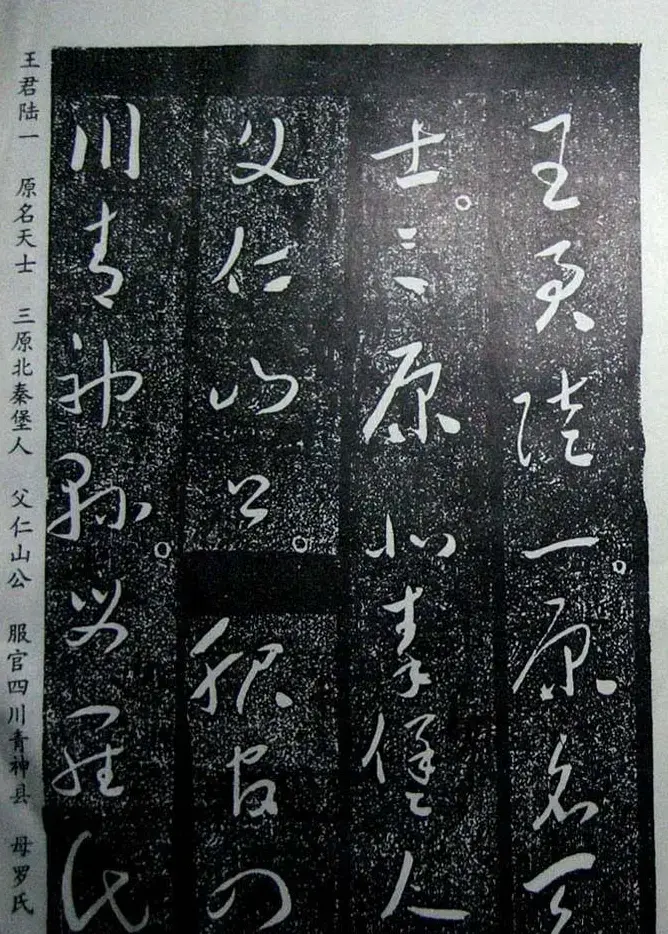 王君陆一。原名天
士。三原北秦堡人
父仁山公。服官四
川青神县。母罗氏
王君陆一 原名天士 三原北秦堡人 父仁山公 服官四川青神县 母罗氏